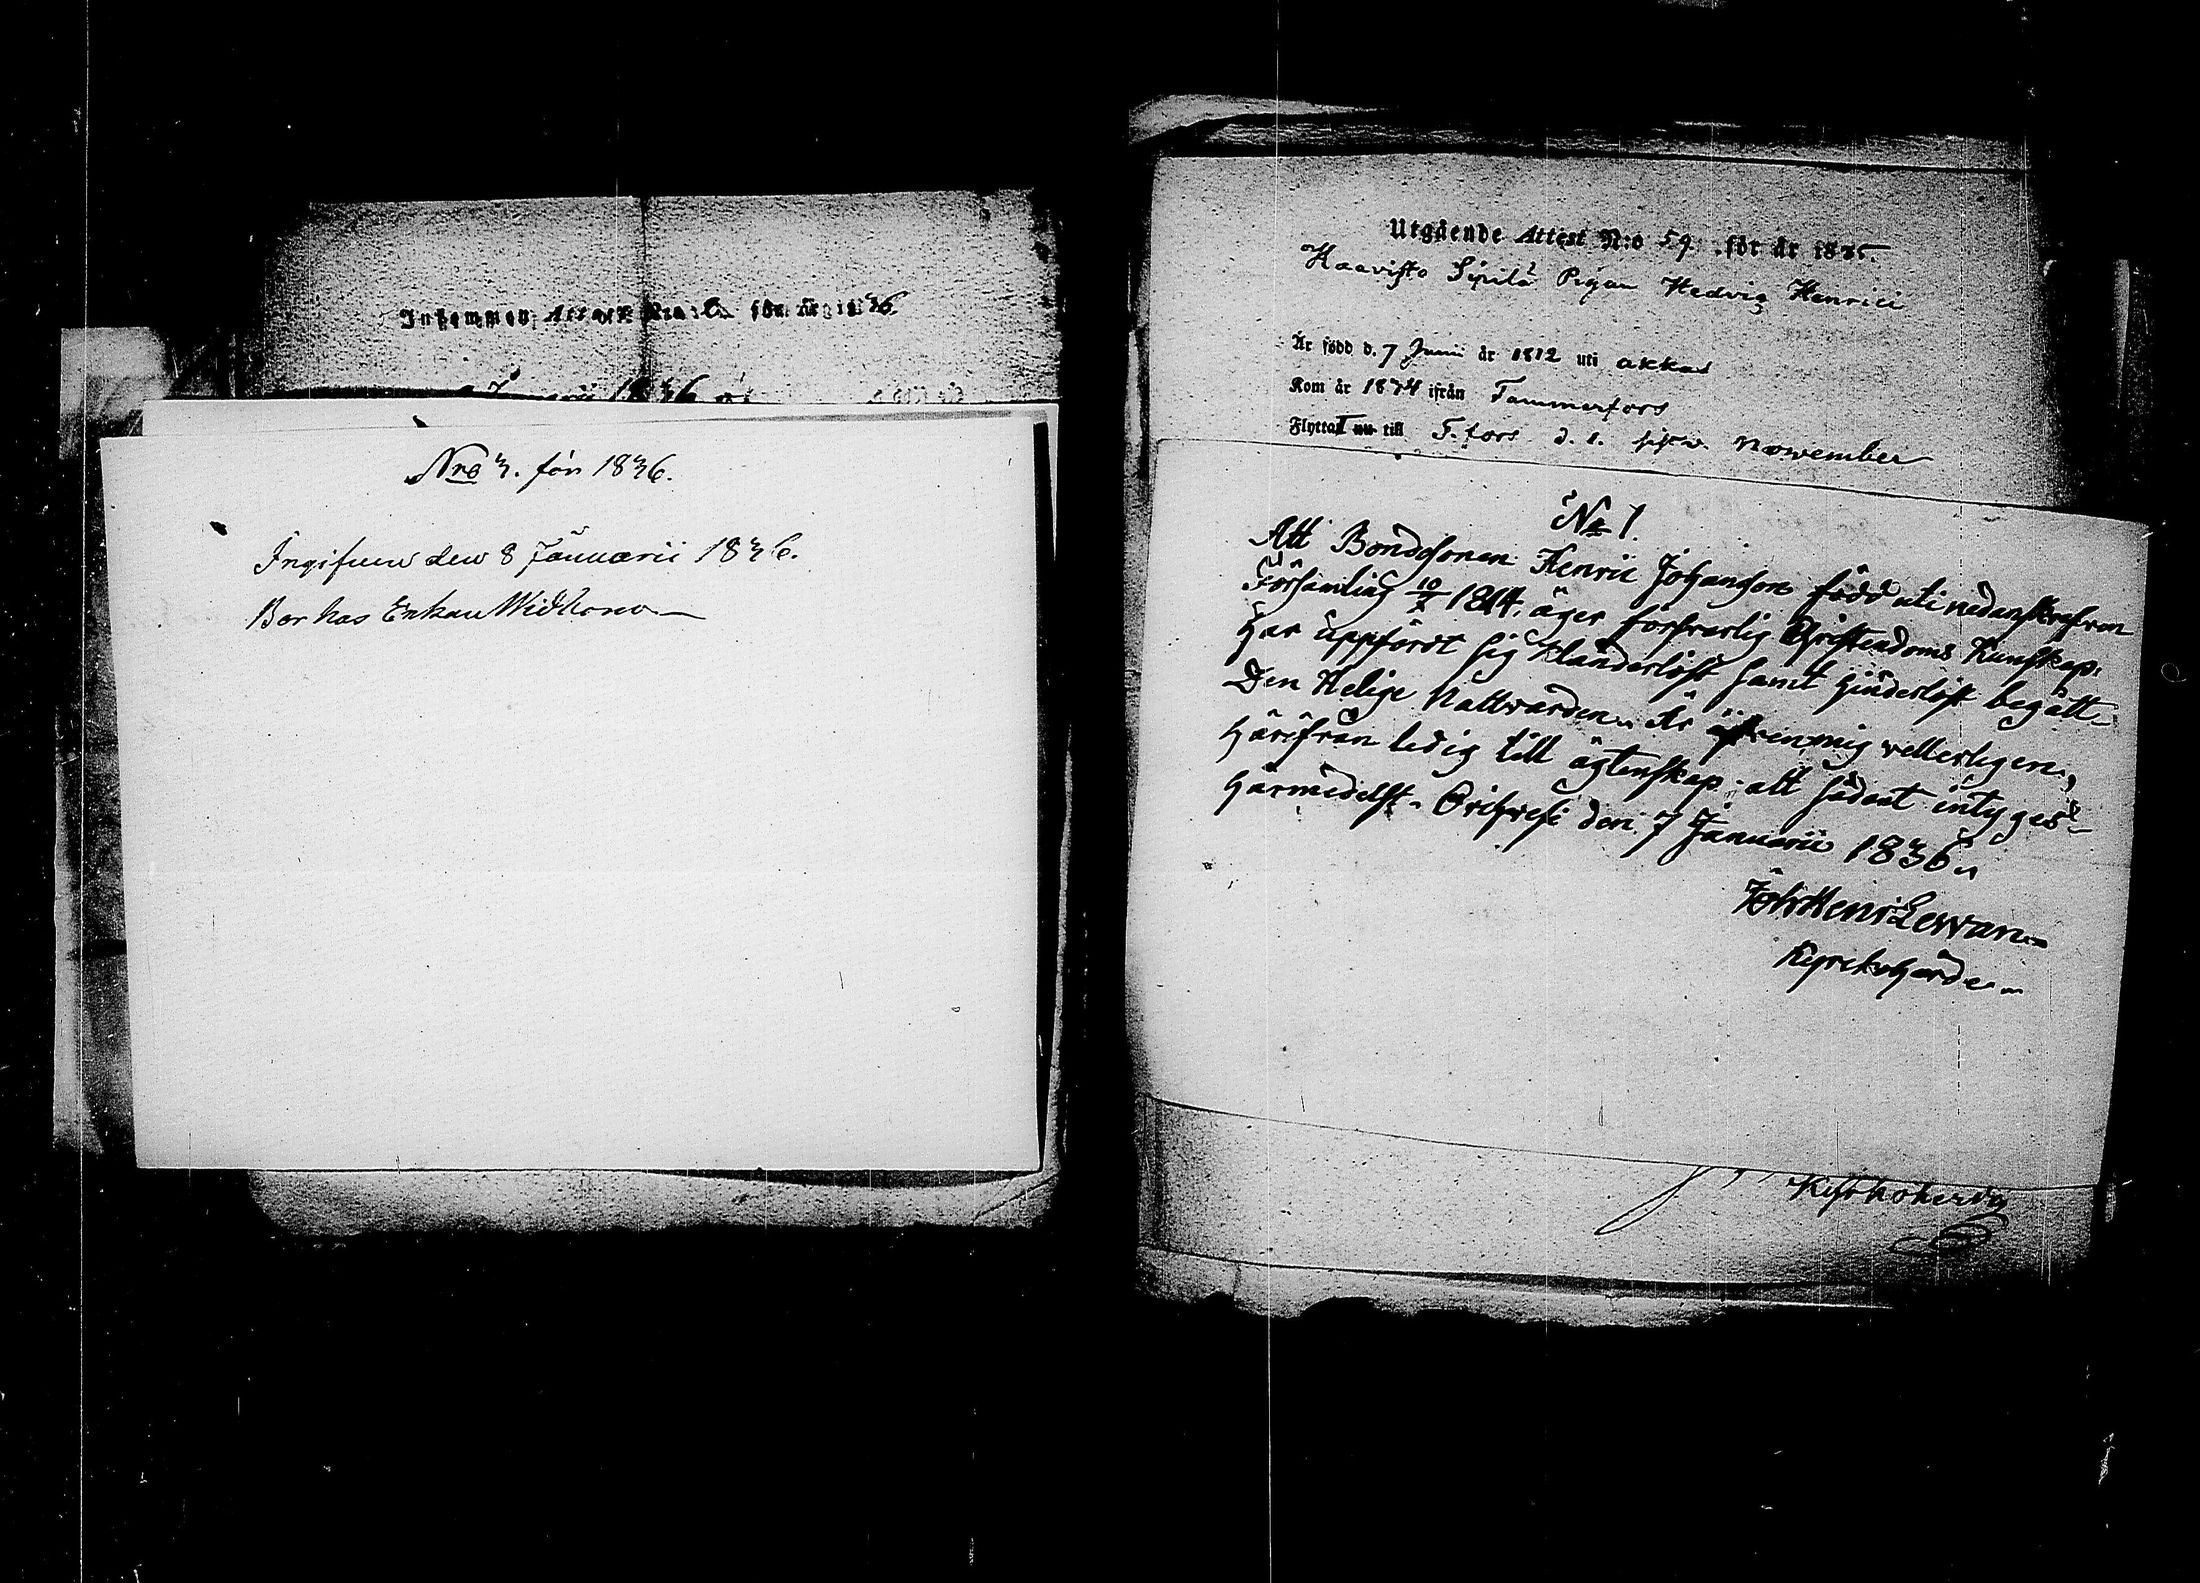 Inkommen Attest N:o för år 1836
Januarii 1836
Nro 3. för 1836.
Ingifven den 8 Januarii 1836.
Bor hos Enkan Widbom
Utgående Attest N:o 59. för år 1835.
Haavisto Sipilä Pigan Hedvig Henrici
Är född d. 7 Junii år 1812 uti Akkas
Kom år 1834 ifrån Tammerfors
Flyttat nu till T.fors d. 1. sistv. November
No 1.
Att Bondesonen Henric Johansson född uti nedanskrefven
Församling 10/7 1814, äger försvarlig Christendoms Kunskap,
har uppfördt sig klanderlöst samt hinderlöst begått
Den Helige Nattvarden. Är äfven mig vetterligen,
härifrån ledig till ägtenskap, att sådant intyges
härmedelst. Orihvesi den 7 Januarii 1836.
Joh Henr Levvan
Kyrckoherde
Kyrkoherde